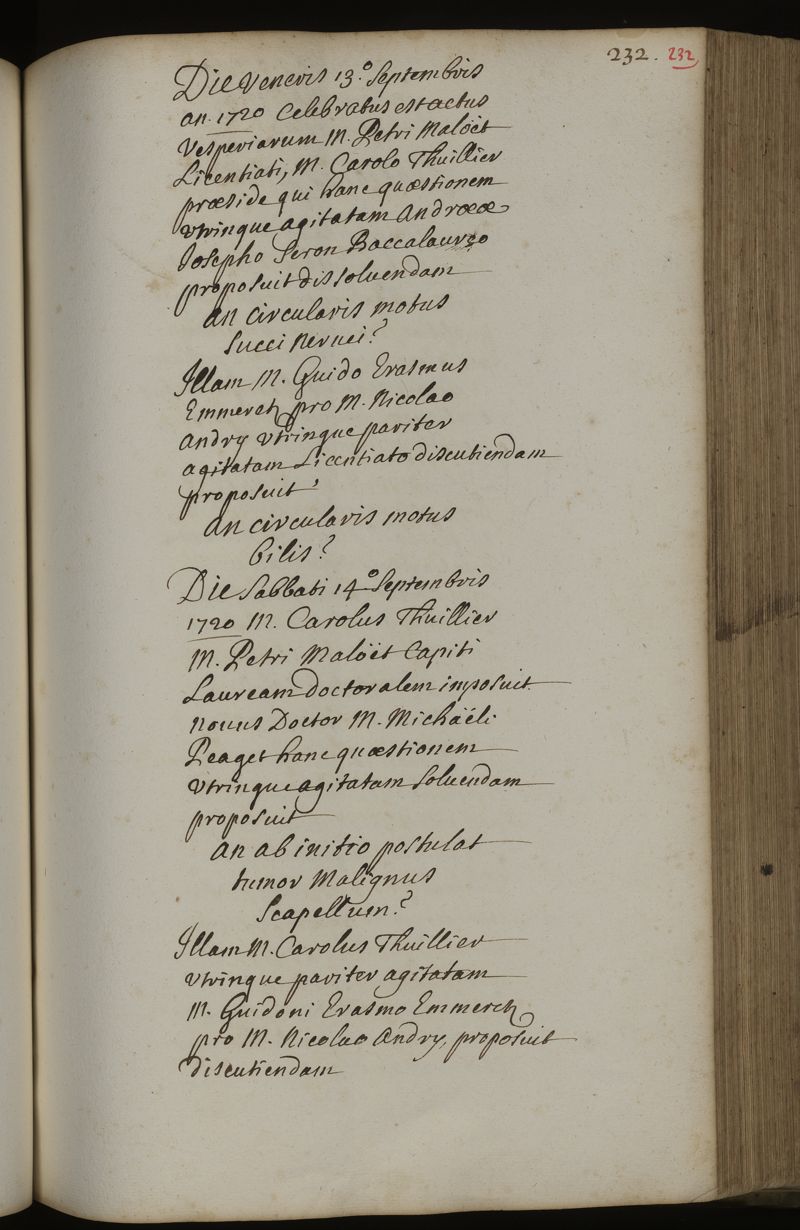 232. 232
Die Veneris 13.° Septembris
an. 1720 Celebratus est actus
Vesperiarum M. Petri Maloët
Licentiati, M. Carolo Thuillier
præside qui hanc quæstionem
vtrinque agitatam Andreæ
Josepho Seron Baccalaureo
proposuit dissoluendam
an circularis motus
succi neruei?
Illam M. Guido Erasmus
Emmerch pro M. Nicolao
Andry vtrinque pariter
agitatam Licentiato discutiendam
proposuit,
an circularis motus
bilis?
Die Sabbati 14° Septembris
1720 M. Carolus Thuillier
M. Petri Maloët Capiti
Lauream doctoralem imposuit
nouus Doctor M. Michäeli
Peaget hanc quæstionem
vtrinque agitatam soluendam
proposuit
an ab initio postulat
tumor Malignus
Scapellum?
Illam M. Carolus Thuillier
vtrinque pariter agitatam
M. Guidoni Erasmo Emmerch
pro M. Nicolao Andry, proposuit
discutiendam